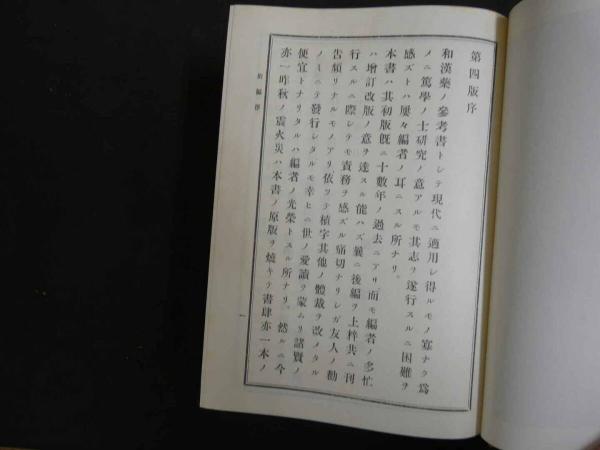 第四版序
和漢藥ノ參考書トシテ現代ニ適用シ得ルモノ寡ナク爲
メニ篤學ノ士研究ノ意アルモ其志ヲ遂行スルニ困難ヲ
感ズトハ屢々編者ノ耳ニスル所ナリ。
本書ハ其初版既ニ十數年ノ過去ニアリ而モ編者ノ多忙
ハ增訂改版ノ意ヲ達スル能ハズ曩ニ後編ヲ上梓共ニ刊
行スルニ際シテモ責務ヲ感ズル痛切ナリシガ友人ノ勸
告頻リナルモノアリ依ツテ植字其他ノ體裁ヲ改メタル
ノミニテ發行シタルモ幸ヒニ世ノ愛讀ヲ蒙ムリ諸賢ノ
便宜トナリタルハ編者ノ光榮トスル所ナリ。然ルニ今
亦一昨秋ノ震火災ハ本書ノ原版ヲ燒キテ書肆亦一本ノ
前編序
一